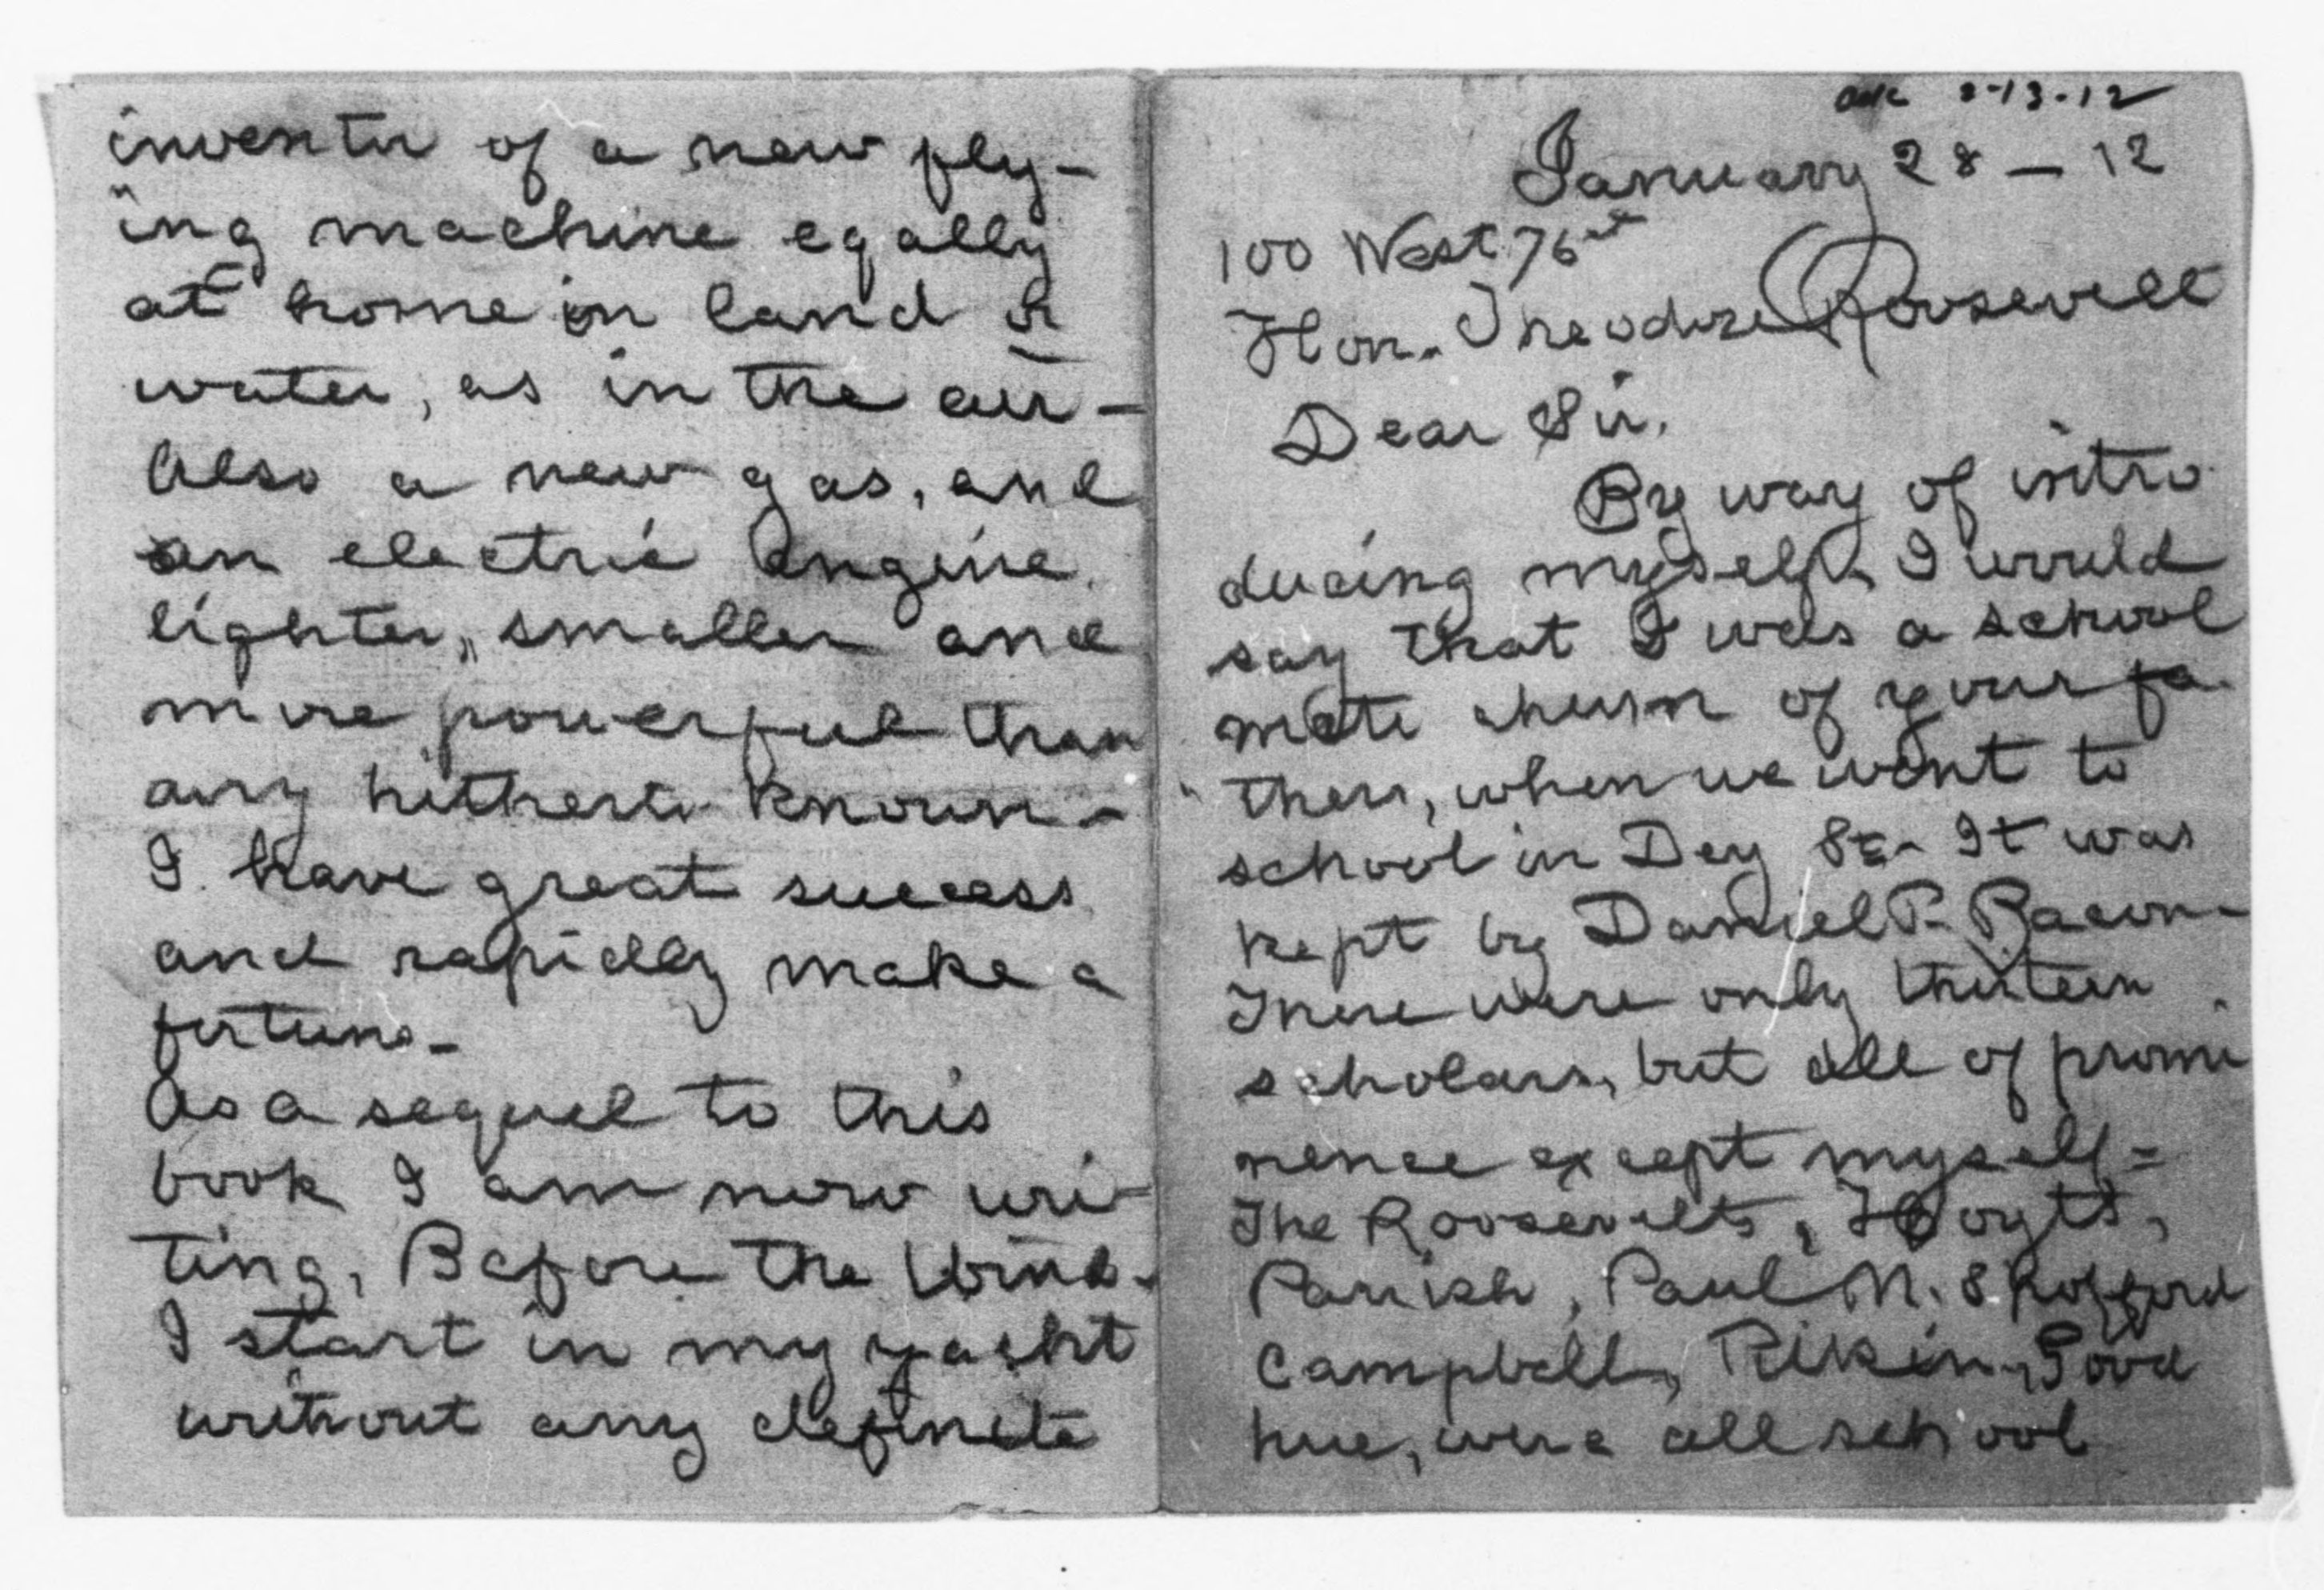 inventor of a new fly-
ing machine eqally
at home on land or
water, as in the air -
Also a new gas, and
an electric Engine
lighter, smaller and
more powerful than
any hitherto known -
I have great success
and rapidly make a
fortune -
As a sequel to this
book I am now wri-
ting, Before the Wind -
I start in my yacht
without any definite
ack 2-13-12
January 28 - 12
100 West 76 st
Hon. Theodore Roosevelt
Dear Sir.
By way of intro
ducing myself, I would
say that I was a school
mate chum of your fa-
ther, when we went to
school in Dey St - It was
kept by Daniel P. Bacon -
There were only thirteen
scholars, but all of promi
nence except myself -
The Roosevelts, Hoyts,
Parish, Paul N. Spofford
Campbell, Rikin, Good
hue, were all school